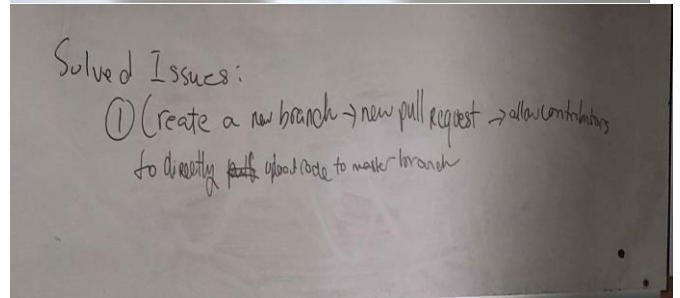 Solved Issues:
① Create a new branch → new pull Request → allow contributors
to directly upload code to master branch